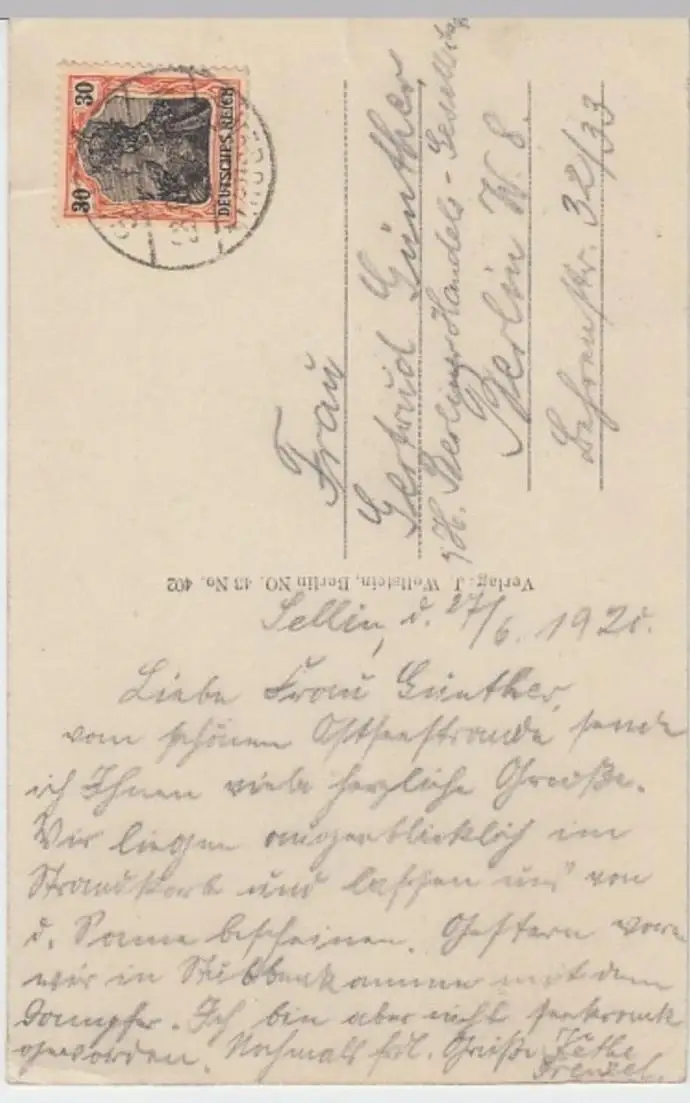 30
30
DEUTSCHES REICH
Frau
Gertrud Günther
Berliner Handels-Gesellsch
Berlin W 8.
Behrenstr. 32/33
Verlag: J. Wollstein, Berlin NO. 43 No. 402
Sellin, d. 27/6. 1920.
Liebe Frau Günther,
vom schönen Ostseestrande sende
ich Ihnen viele herzliche Grüße.
Wir liegen augenblicklich im
Strandkorb und lassen uns von
d. Sonne bescheinen. Gestern waren
wir in Stubbenkammer mit dem
Dampfer. Ich bin aber nicht seekrank
geworden. Nochmals frdl. Grüße Käthe
Frenzel.